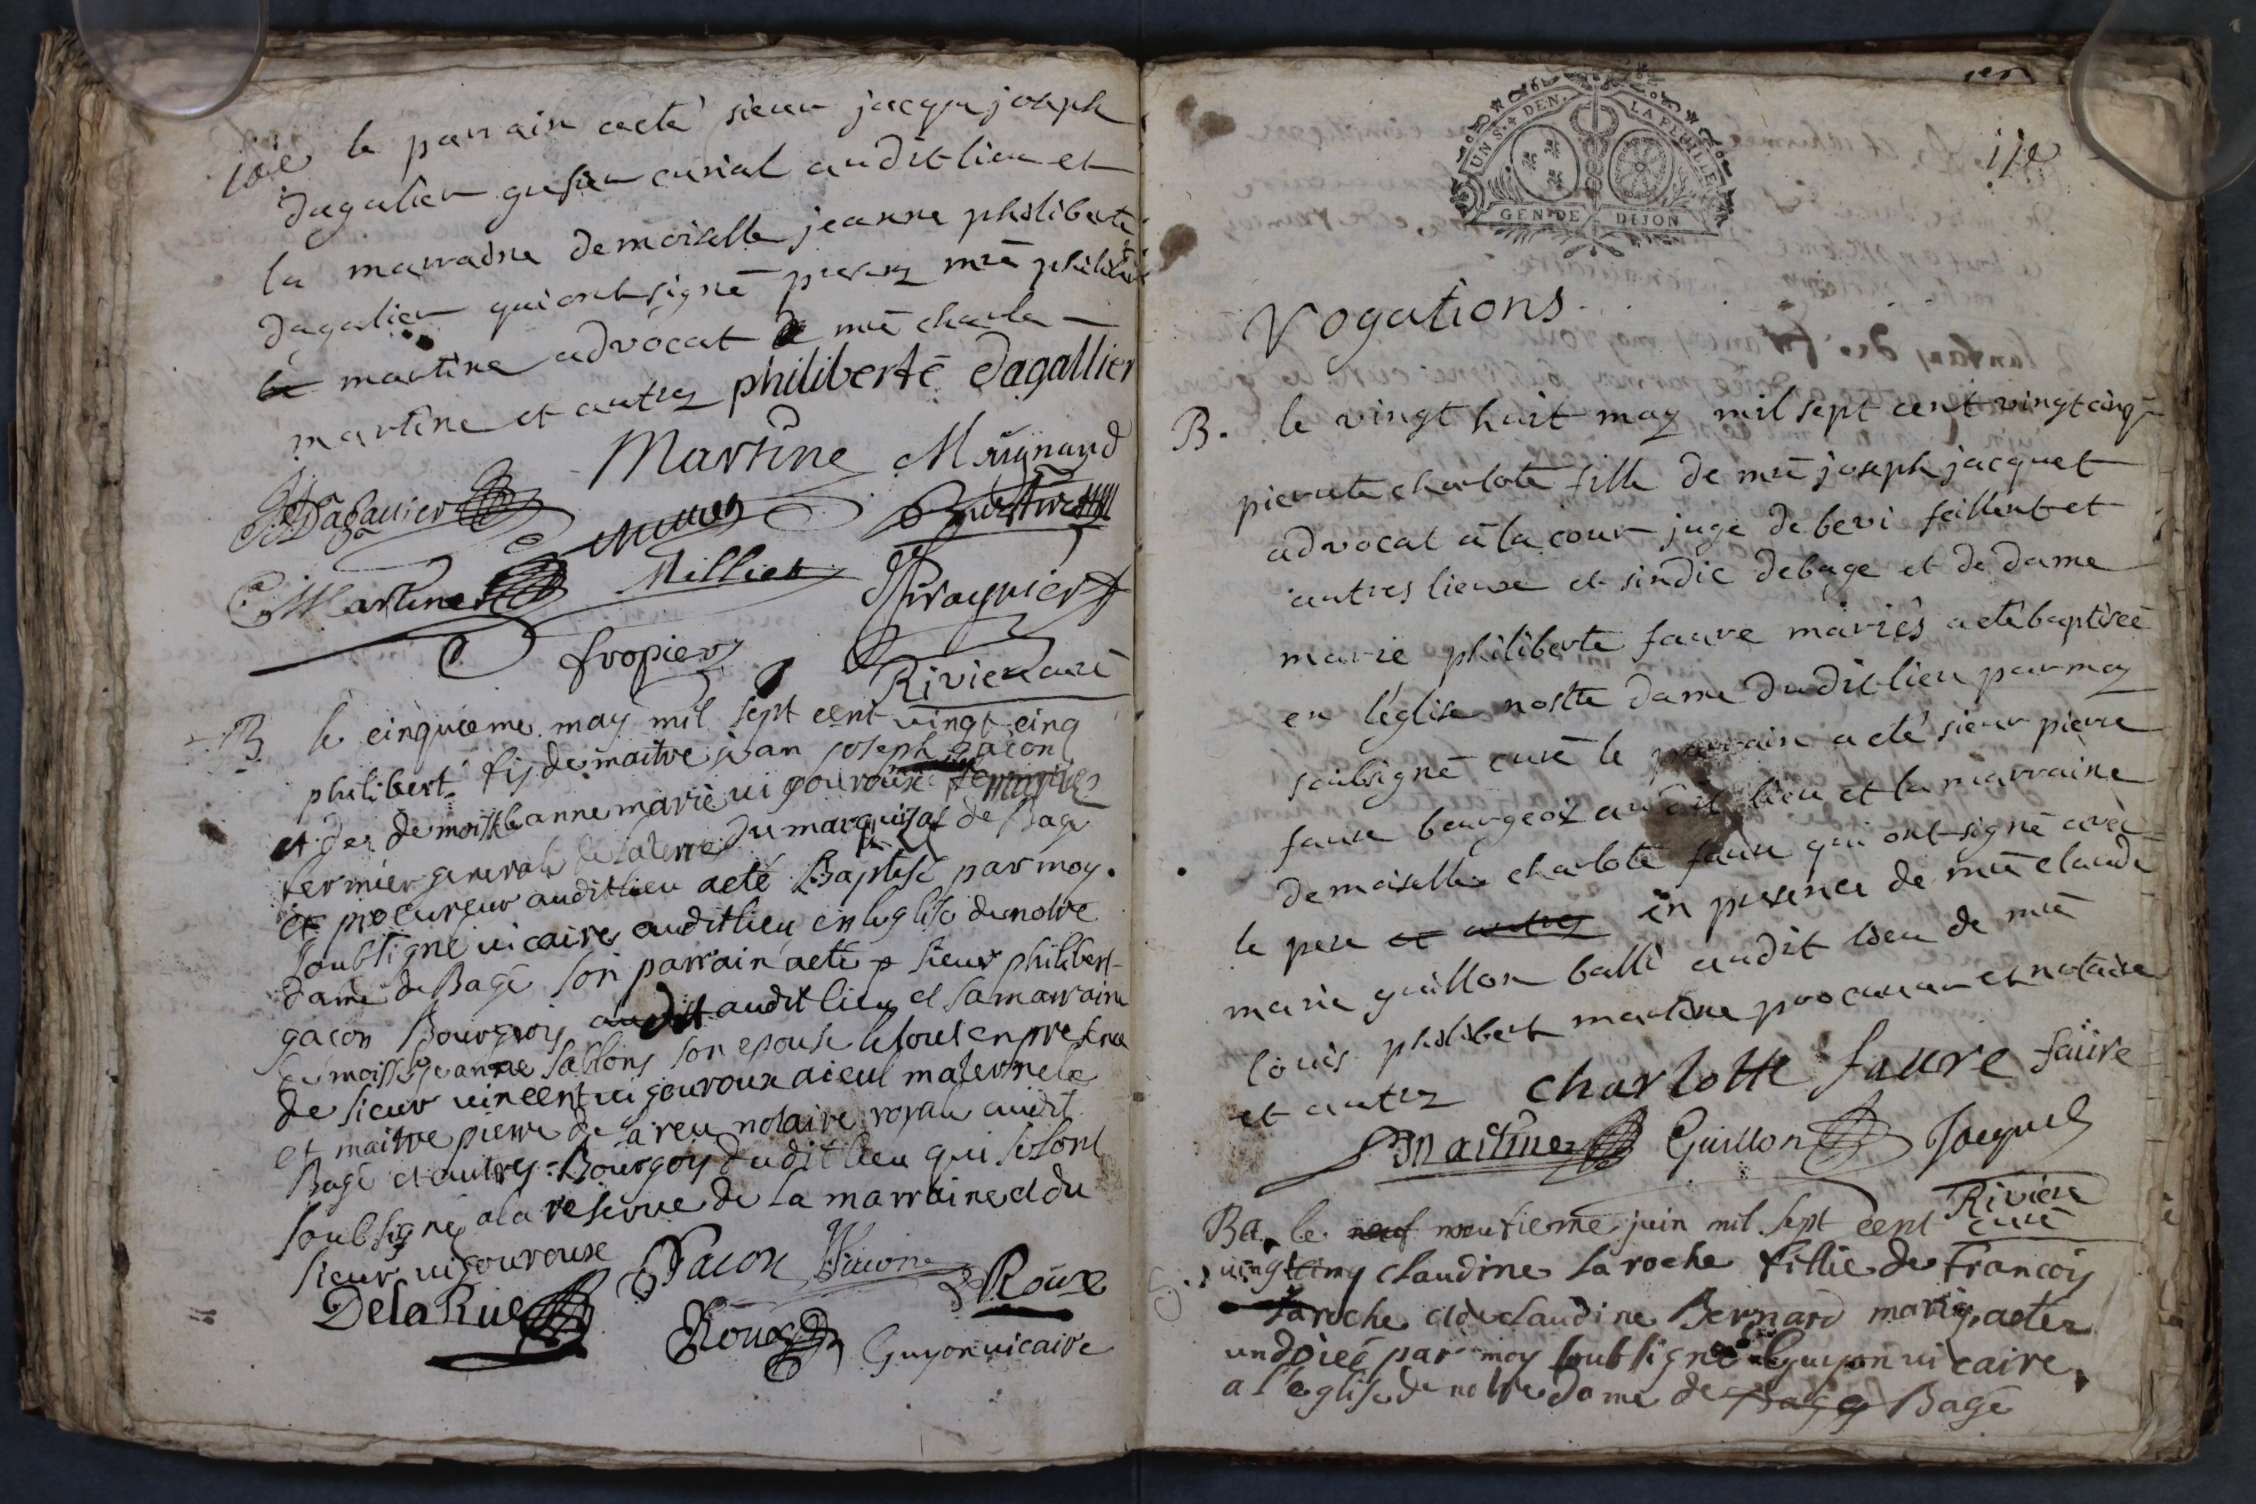 le parrain a eté sieur jacque joseph
dagalier gresier curial audit lieu et
la marraine demoiselle jeanne philiberte
dagalier qui ont signé presen mre philibert
martine advocat mre charle
martine et autrez philiberte dagallier
Martine Muynard
Dagallier
C Martine Millier
fropier Riviere curé
B le cinquieme may mil sept cent vingt cinq
philibert fis de maitre jean joseph gacon
et de demoisselle anne marie vigouroux
fermier general de la terre du marquisat de Bagé
et procureur audit lieu a eté Baptisé par moy
soubsigné vicaire audit lieu en leglise de notre
dame de Bagé son parrain a eté sieur philibert
gacon Bourgeois audit audit lieu et sa marraine
demoisselle jeanne sablons son epouse le tout en presence
de sieur vincent vigouroux aieul maternele
et maitre pierre de la reu notaire royale audit
Bagé et autres Bourgois dudit lieu qui se sont
soubsigné a la reserve de la marraine et du
sieur vigouroux
Gacon
De la Rue Roux
Guyon vicaire
UN S. 4 DEN. LA FEUILLE
GEN DE DIJON
Vogations
B. le vingt huit may mil sept cent vingt cinq
pierrette charlote fille de mre joseph jacquet
advocat à la cour juge de bevi feillent et
autres lieux et sindic de bage et de dame
marie philiberte faure mariés a eté baptisée
en l'église nostre dame dudit lieu par moy
soubsigné curé le parrain a eté sieur pierre
faure bourgeoiz audit lieu et la marraine
demoiselle charlote faure qui ont signé avec
le pere et autres en presence de mre claude
marie guillon balli audit lieu de mre
louis philibert martine procureur et notaire
et autrez charlotte faure faüre
Martine Guillon Jacquet
Riviere
curé
Ba. le neuf neutieme juin mil sept cent
vingt cinq claudine laroche fillie de francois
Laroche et de claudine Bernard mariés a eté
undoieé par moy soubsigné Guyon vicaire
a l'eglise de notre dame de Bagé Bagé